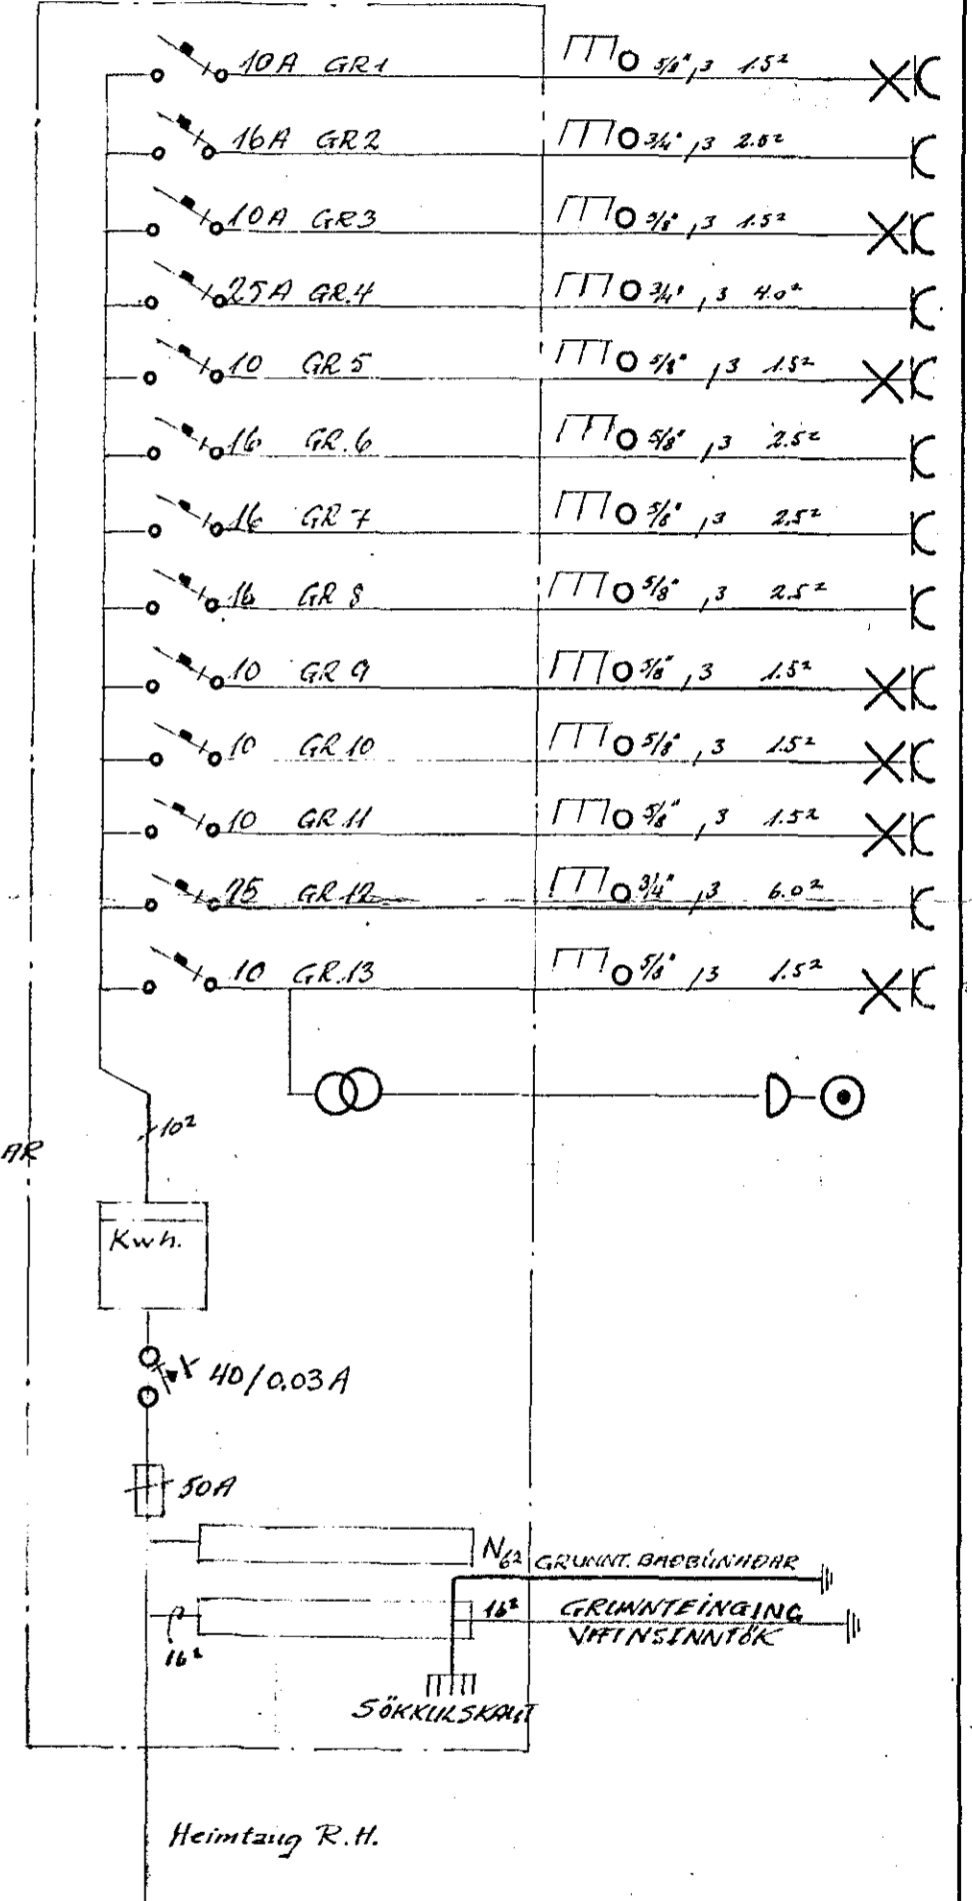 10A GR1 5/8" ,3 1.5²
16A GR2 3/4" ,3 2.5²
10A GR3 5/8" ,3 1.5²
25A GR.4 3/4" ,3 4.0²
10 GR5 5/8" ,3 1.5²
16 GR.6 5/8" ,3 2.5²
16 GR7 5/8" ,3 2.5²
16 GR8 5/8" ,3 2.5²
10 GR9 5/8" ,3 1.5²
10 GR10 5/8" ,3 1.5²
10 GR.11 5/8" ,3 1.5²
25 GR.12 3/4" ,3 6.0²
10 GR.13 5/8" ,3 1.5²
10²
AR
Kwh.
40/0.03A
50A
N
6² GRUNNT. BAÐBÚNAÐAR
16² GRUNNTEINGING
VATNSINNTÖK
16²
SÖKKULSKAUT
Heimtaug R.H.